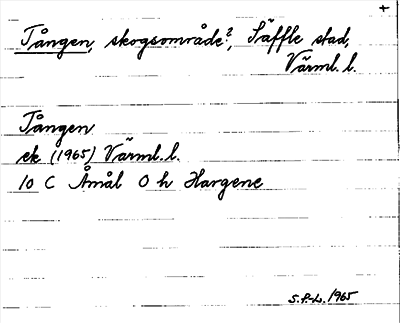 +
Tången, skogsområde?, Säffle stad,
Värml. l.
Tången
ek (1965) Värml. l.
10 C Åmål O h Hargene
S.P-L. 1965